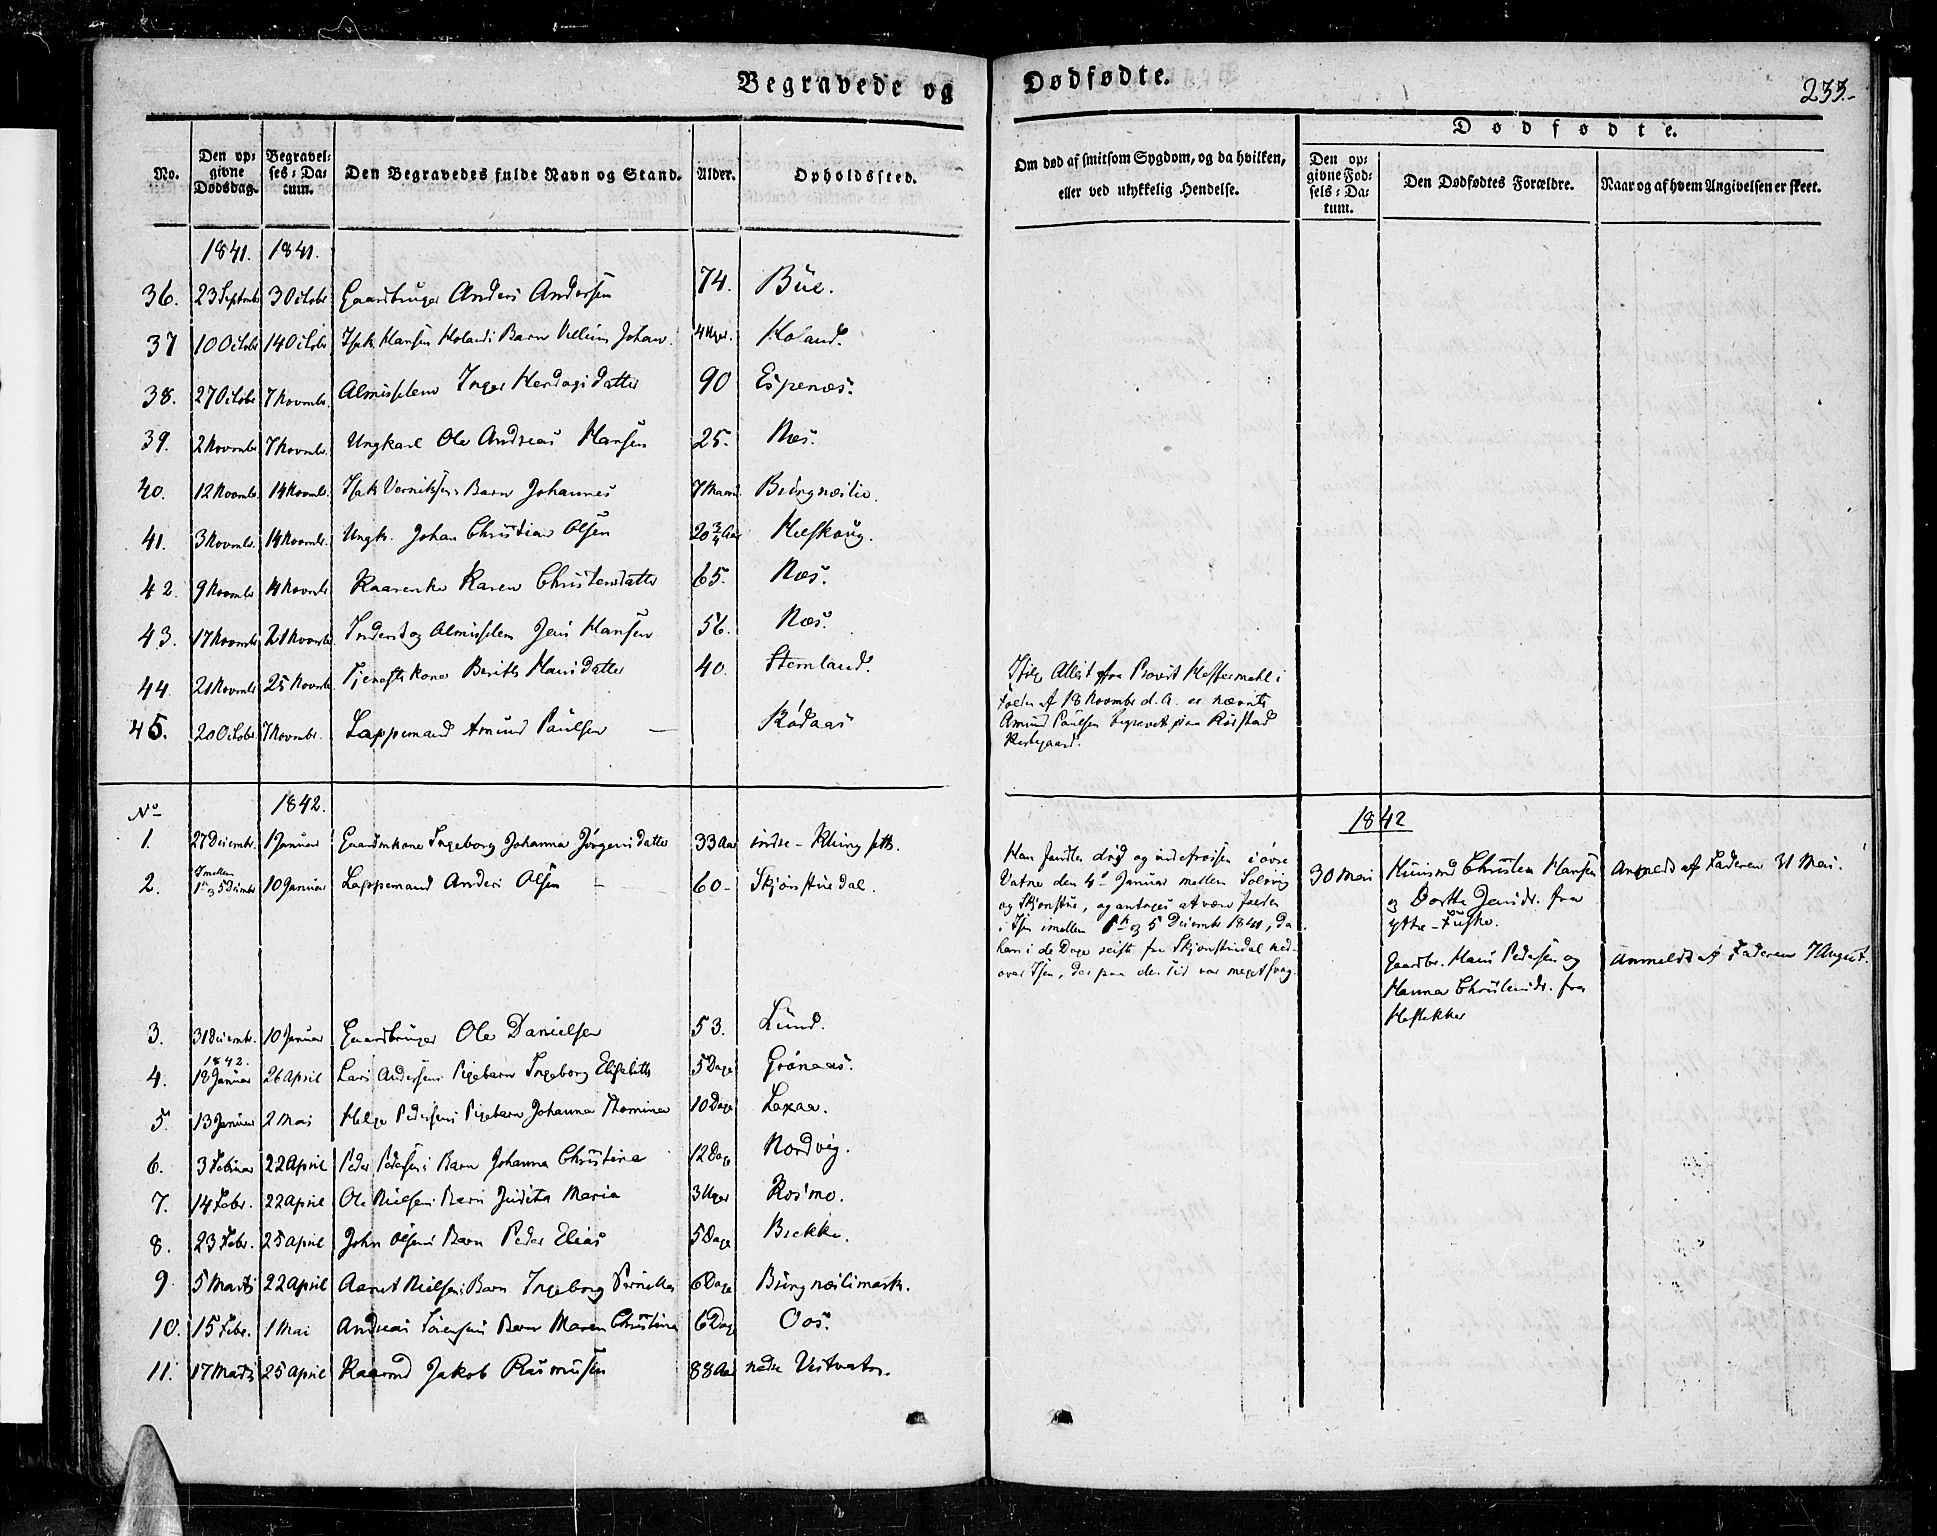 Begravede og
Dødfødte.
233.
No.
Den op=
givne
Dødsdag.
Begravel=
ses=Da=
tum.
Den Begravedes fulde Navn og Stand.
Alder.
Opholdssted.
Om død af smitsom Sygdom, og da hvilken,
eller ved ulykkelig Hendelse.
Dødfødte.
Den op=
givne Fød=
sels=Da=
tum.
Den Dødfødtes Forældre.
Naar og af hvem Angivelsen er skeet.
1841. 1841.
36. 23 Septembr 3 Octobr Gaardbruger Anders Andersen 74. Bue.
37 10 Octobr 14 Octobr Isak Hansen Holands Barn Villum Johan. 4 Uger. Holand.
38. 27 Octobr 7 Novembr. Almisselem Inger Hendags datter 90 Espenæs.
39. 2 Novembr 7 Novembr. Ungkarl Ole Andreas Hansen 25. Næs.
40. 12 Novembr 14 Novembr. Isak Barn Johannes 7 Maan. Bringnæslie.
41. 3 Novembr. 14 Novembr. Ungk. Johan Christian Olsen 20 3/4 Aar
42. 9 Novembr 14 Novembr Kaarenke Karen Christensdatter 65. Næs.
43. 17 Novembr 21 Novembr Inderst og Almisselem Jens Hansen 56. Næs.
44. 21 Novembr 25 Novembr Tjenestekone Berith Hansdatter 40. Stemland.
45. 20 Octobr 7 Novembr. Lappemand Amund Paulsen — Rödaas
Ifølge Attest fra Provst Heffermehl i
Folden af 18 Novembr d. A. er nævnte
Amund Paulsen begravet paa Rørstad
Kirkegaard.
No 1842.
1. 27 Decembr. 1 Januar Gaardmkone Ingeborg Johanna Jörgensdatter 33 Aar indre- Klungsæth.
2. Imellem
1 og 5 Decembr 10 Januar Lappemand Anders Olsen — 60- Skjönstuedal.
Han fandtes död og indefrossen i övre
Vatne den 4de Januar mellem Solvig
og Skjönstue, og antages at være falden
i Isen imellem 1ste og 5 Decembr 1841, da
han i de Dage reiste fra Skjönstuedal ned-
over Isen, der paa den Tid var meget svag.
1842
30 Mai Huusmd Christen Hansen
og Dorthe Jensdr. fra
ytre-Fuske.
Anmeldt af Faderen 31 Mai.
Gaardbr. Hans Pedersen og
Hanna Christensdr. fra
Anmeldt af Faderen 7 August.
3. 31 Decembr. 10 Januar Gaardbruger Ole Danielsen 53. Lund.
1842.
4. 12 Januar 26 April Lars Andersens Pigebarn Ingeborg Elisabeth 5 Dage Grönaas.
5. 13 Januar 2 Mai Helge Pedersens Pigebarn Johanna Thomine 10 Dage Laxaa.
6. 3 Februar 22 April Peder Pedersens Barn Johanna Christina 12 Dage Nordvig.
7. 14 Febr. 22 April Ole Nielsens Barn Judita Maria 3 Uger Kosmo.
8. 23 Febr. 25 April John Olsens Barn Peder Elias 5 Dage Brekke.
9 5 Marts 22 April Aarnt Nielsens Barn Ingeborg Pernilla 6 Dage Bringnæslimark.
10. 15 Febr. 1 Mai Andreas Sörensens Barn Maren Christina 6 Dage Oos.
11. 17 Marts 25 April Kaarmd Jakob Rasmussen 88 Aar nedre Vestvatn.